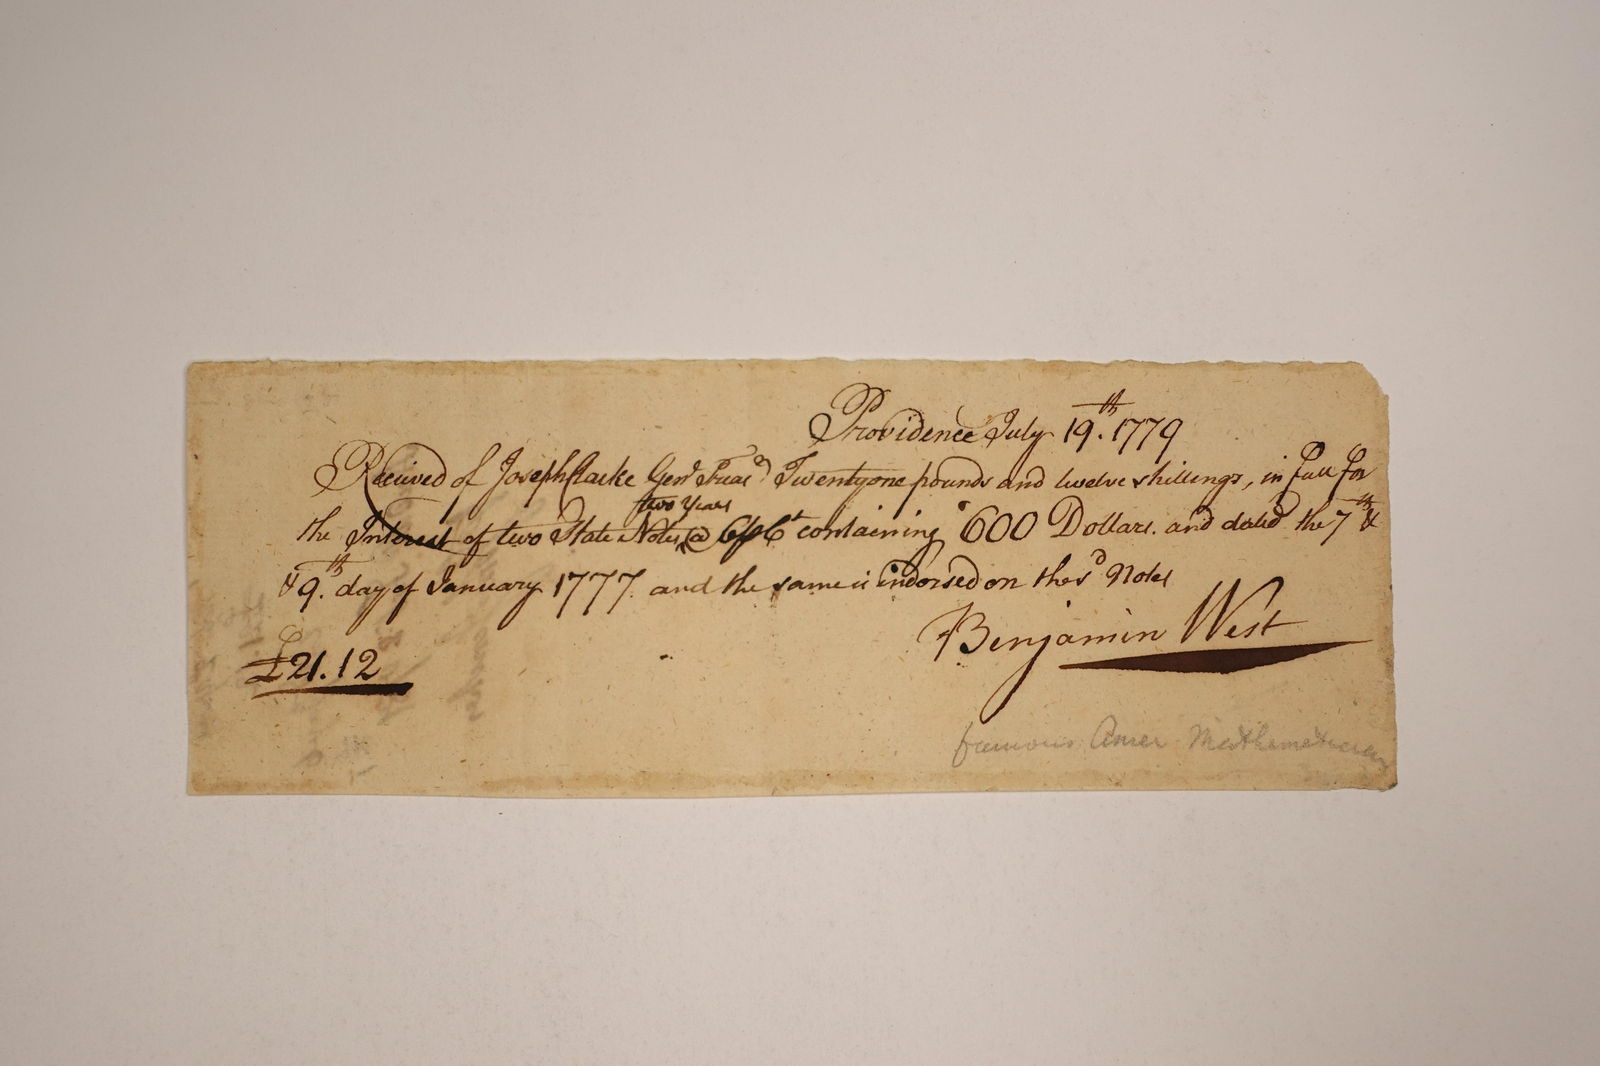 Providence July 19th. 1779
Received of Joseph Clarke Genl Treasr Twentyone pounds and twelve shillings, in full for
two Years
the Interest of two State Notes @ 6 pCt containing 600 Dollars. and dated the 7th &
& 9.th day of January 1777. and the same is indorsed on the sd Notes
Benjamin West
£21.12
famous Amer Mathematician